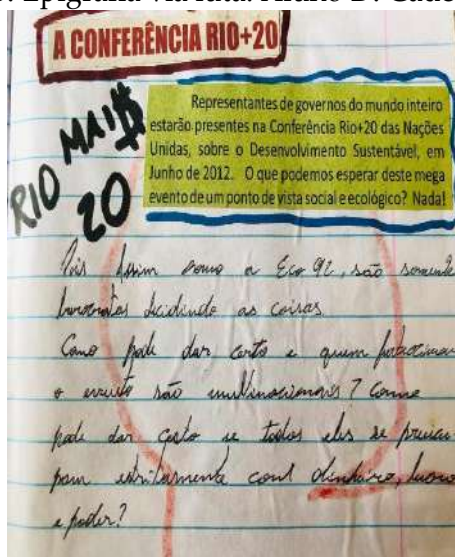 A CONFERÊNCIA RIO+20
Representantes de governos do mundo inteiro
estarão presentes na Conferência Rio+20 das Nações
Unidas, sobre o Desenvolvimento Sustentável, em
Junho de 2012. O que podemos esperar deste mega
evento de um ponto de vista social e ecológico? Nada!
RIO MAI$
20
Pois assim como a Eco 92, são somente
burocratas decidindo as coisas
Como pode dar certo e quem
o evento são multinacionais? Como
pode dar certo se todos eles se preocu
pam estritamente com dinheiro, lucro
e poder?